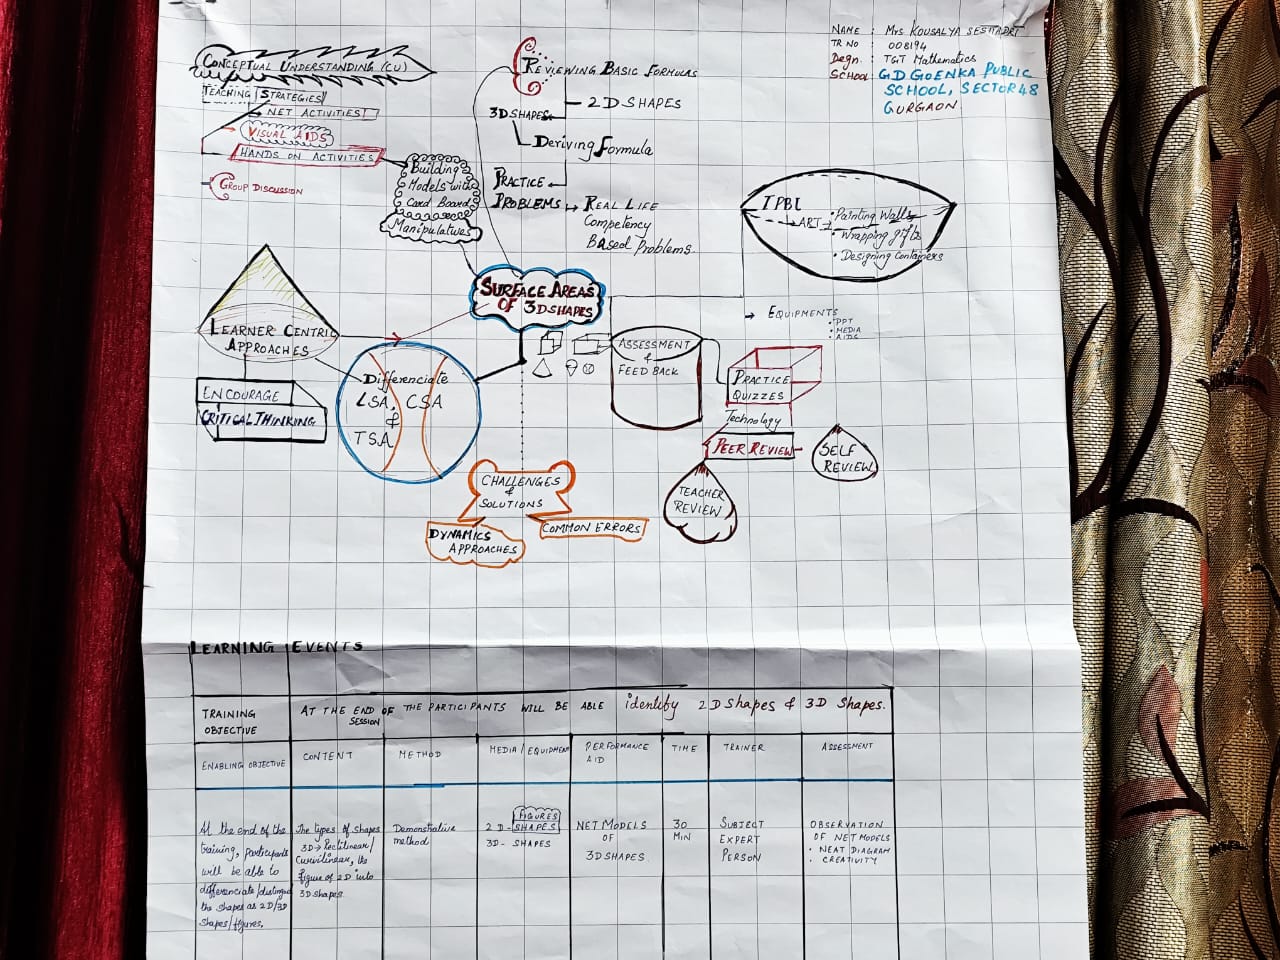 NAME : Mrs KOUSALYA SESHADRI
TR NO : 008194
Degn. : TGT Mathematics
SCHOOL: G.D GOENKA PUBLIC
SCHOOL, SECTOR 48
GURGAON
CONCEPTUAL UNDERSTANDING (CU)
TEACHING STRATEGIES
NET ACTIVITIES
VISUAL AIDS
HANDS ON ACTIVITIES
GROUP DISCUSSION
Building
Models with
Card Board
Manipulatives
REVIEWING BASIC FORMULAS
2D SHAPES
3D SHAPES
Deriving Formula
PRACTICE
PROBLEMS
REAL LIFE
Competency
Based Problems
TPBL
ART
• Painting Walls
• Wrapping gifts
• Designing Containers
EQUIPMENTS
• PPT
• MEDIA
• AIDS
SURFACE AREAS
OF 3D SHAPES
LEARNER CENTRIC
APPROACHES
ENCOURAGE
CRITICAL THINKING
Differenciate
LSA, CSA
&
TSA
ASSESSMENT
&
FEED BACK
PRACTICE
QUIZZES
Technology
PEER REVIEW
SELF
REVIEW
TEACHER
REVIEW
CHALLENGES
&
SOLUTIONS
DYNAMICS
APPROACHES
COMMON ERRORS
LEARNING EVENTS
TRAINING
OBJECTIVE
AT THE END OF THE PARTICIPANTS WILL BE ABLE identify 2D Shapes & 3D Shapes.
SESSION
ENABLING OBJECTIVE
CONTENT
METHOD
MEDIA / EQUIPMENT
PERFORMANCE
AID
TIME
TRAINER
ASSESSMENT
At the end of the
training, participants
will be able to
differenciate/distinguish
the shapes as 2D/3D
shapes/figures.
The types of shapes
3D→ Rectilinear/
Curvilinear, the
figure of 2D into
3D shapes
Demonstrative
method
FIGURES
2 D - SHAPES
3D - SHAPES
NET MODELS
OF
3D SHAPES
30
MIN
SUBJECT
EXPERT
PERSON
OBSERVATION
OF NET MODELS
• NEAT DIAGRAM
• CREATIVITY